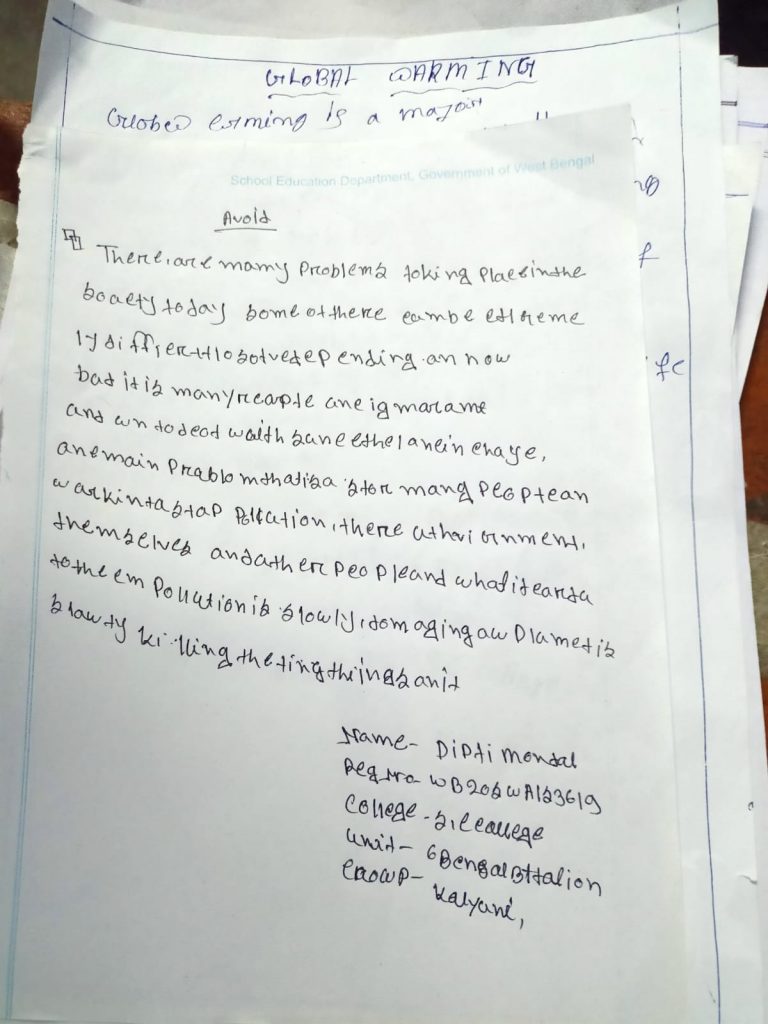 GLOBAL WARMING
is a major
School Education Department, Government of West Bengal
Avoid
There, are mamy problems toking placeinthe
soaety today some of there eambe etlreme
ly differcttlosolvedepending. an now
bad itis manyreaple are igmarame
and wn todeot walth sane ethelanein chaye,
anemain Prablomthatisa stor mang peoptean
warkintastap pollcution, there athevi ornment.
themselves andather peopleand whatiteansa
tothe em pollutionis slowly, damagingaw Plametis
slawty killing thetingtheingsanit
Name- Dipti mondal
Reg No- WB20SWA183619
College- S.L College
Unit- 6 Bengal Bttalion
Crowp- Kalyani,